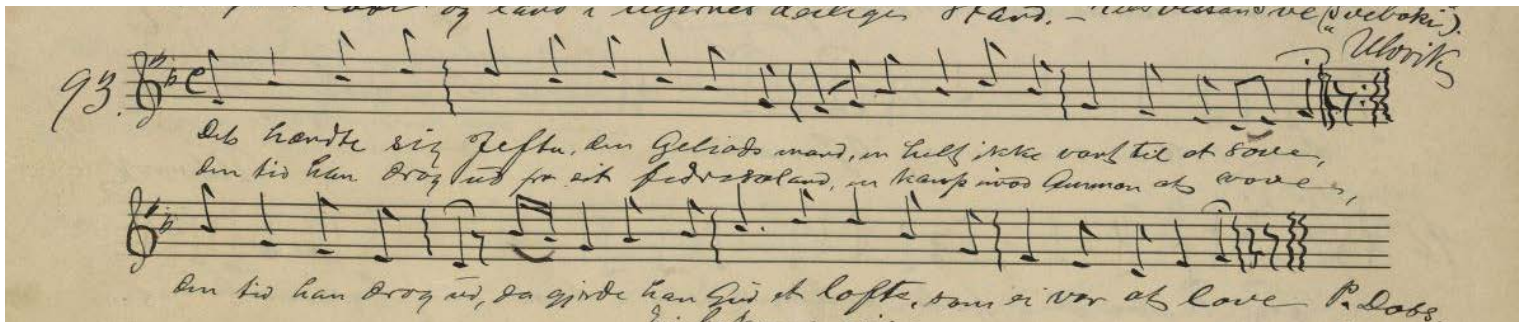 og land i deilige Stand. –
Ulvik
93.
Det hændte sig Jefta, den Geliads mand, en helt ikke vant til at sove,
den tid han drog ud fra sit fædreneland, en kamp imod Ammon at vove,
den tid han drog ud, da gjorde han Gud et løfte, som ei var at love P. Dass.